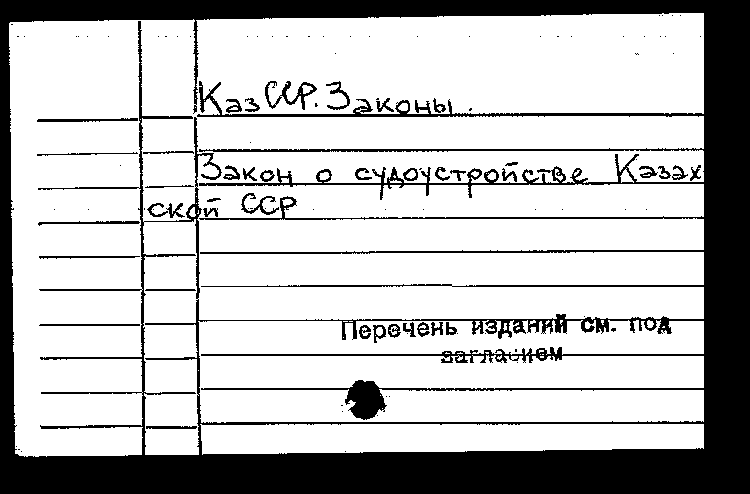 КазССР. Законы.
Закон о судоустройстве Казах
ской ССР
Перечень изданий см. под
заглавием